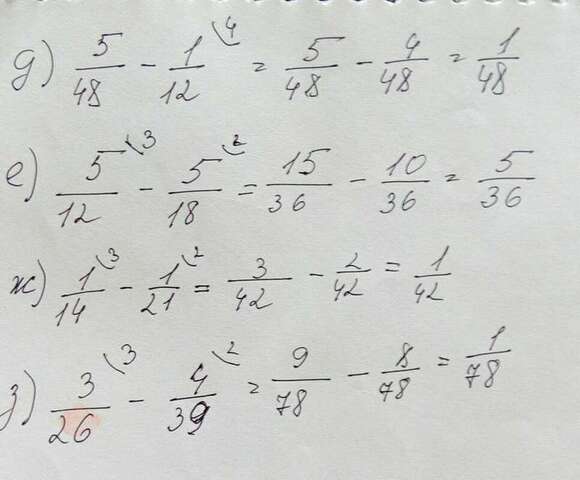 д) 5/48 - 1/12 \4 = 5/48 - 4/48 = 1/48
е) 5/12 \3 - 5/18 \2 = 15/36 - 10/36 = 5/36
ж) 1/14 \3 - 1/21 \2 = 3/42 - 2/42 = 1/42
з) 3/26 \3 - 4/39 \2 = 9/78 - 8/78 = 1/78